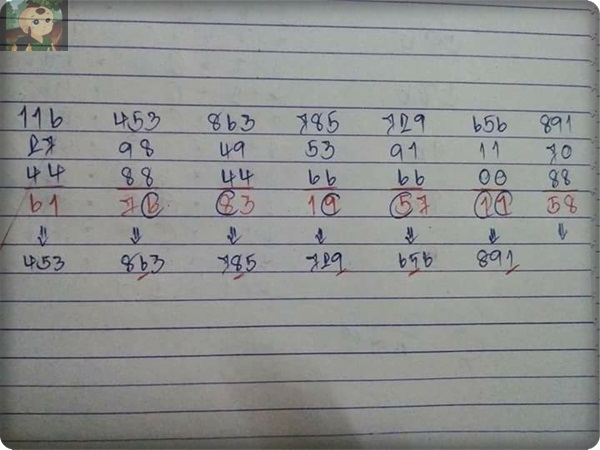 116 453 863 785 729 656 891
27 98 49 53 91 11 70
44 88 44 66 66 00 88
61 76 83 19 57 11 58
⇓ ⇓ ⇓ ⇓ ⇓ ⇓ ⇓
453 863 785 729 656 891